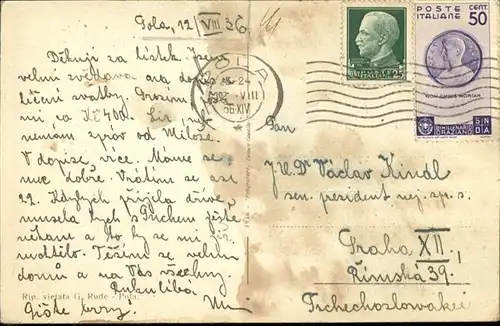 Pola, 12 VIII 36.
Děkuji za lístek. Jsem
velmi zvědava na do
líčení svatby. Prosím
mi, za Kč 400.
nemám zpráv od Miloše.
V dopise, více. Máme se
moc dobře. Vrátím se asi
22. Kdybych přijela dříve,
musela bych s Puchem ještě
někam a to by se mi již
nechtělo. Těším se velmi
domů a na Vás všechny.
Rukulíbá
Pište brzy.
Rip. vietata G. Rude - Pola.
POLA
POSTE ITALIANE
CENT. 50
NON OMNIS MORIAR
BIMILLENARIO ORAZIANO
25
Pan
J.U.Dr Václav Kindl
sen. president nej. sp. s.
Praha XII.,
Římská 39.
Tschechoslowakei